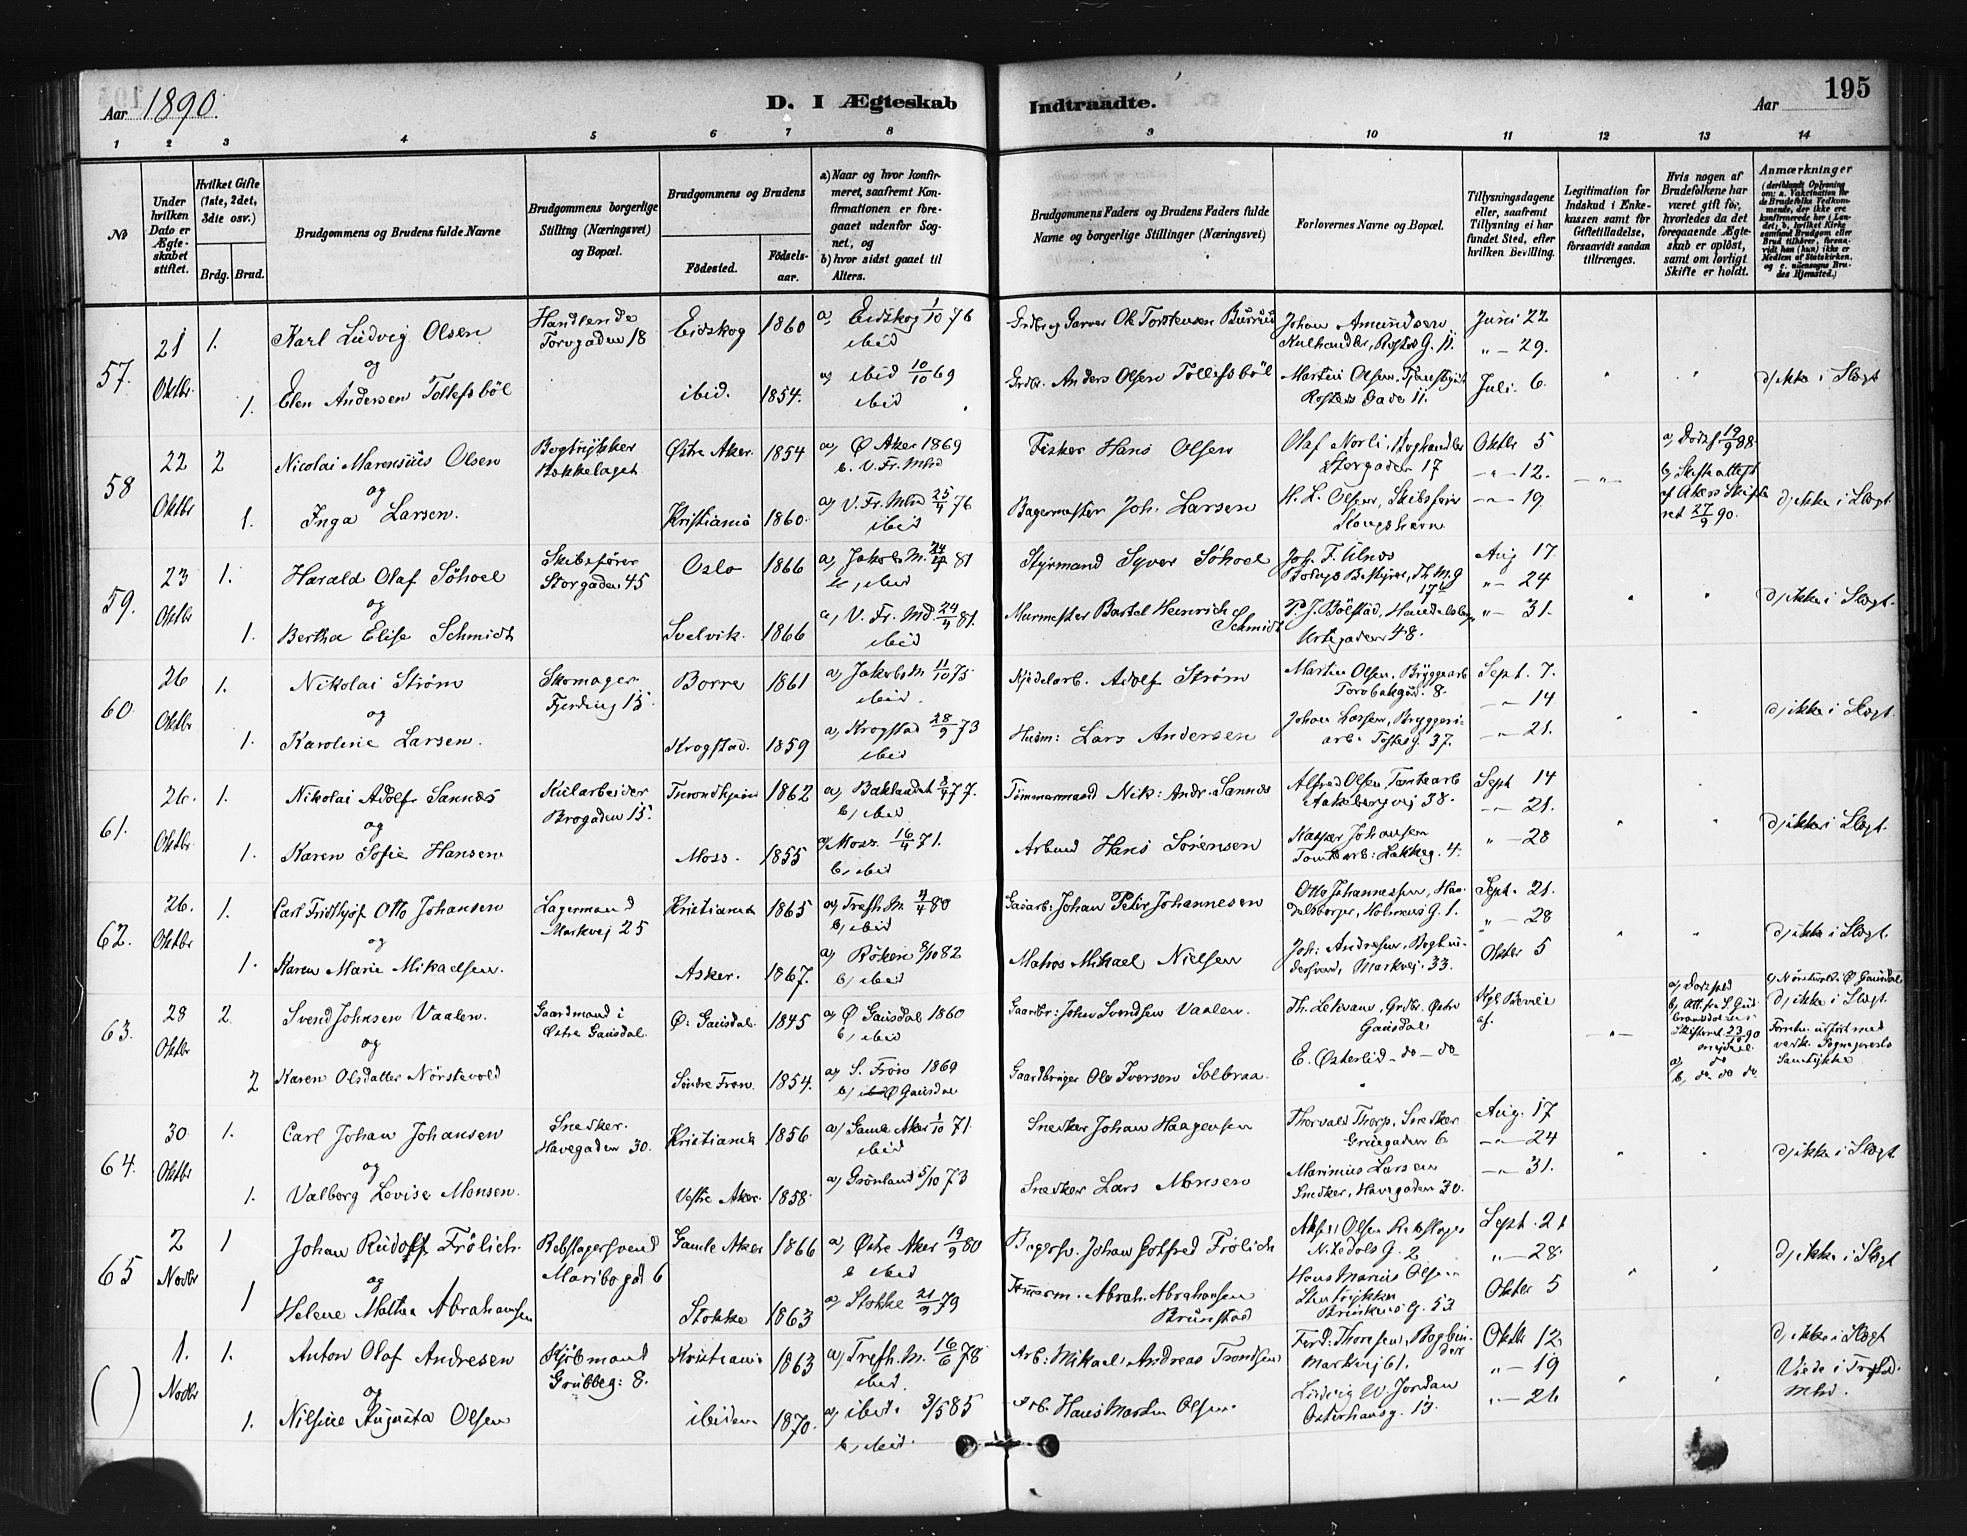 Aar 1890.
D. I Ægteskab Indtraadte.
Aar
195
1 2 3 4 5 6 7 8 9 10 11 12 13 14
No
Under hvilken Dato er Ægteskabet stiftet.
Hvilket Gifte (1ste, 2det, 3die osv.)
Brdg. Brud.
Brudgommens og Brudens fulde Navne
Brudgommens borgerlige Stilling (Næringsvei) og Bopæl.
Brudgommens og Brudens
Fødested. Fødselsaar.
a) Naar og hvor konfirmeret, saafremt Konfirmationen er foregaaet udenfor Sognet, og
b) hvor sidst gaaet til Alters.
Brudgommens Faders og Brudens Faders fulde Navne og borgerlige Stillinger (Næringsvei)
Forlovernes Navne og Bopæl.
Tillysningsdagene eller, saafremt Tillysning ei har fundet Sted, efter hvilken Bevilling.
Legitimation for Indskud i Enkekassen samt for Giftetilladelse, forsaavidt saadan tiltrænges.
Hvis nogen af Brudefolkene har været gift før, hvorledes da det foregaaende Ægteskab er opløst, samt om lovligt Skifte er holdt.
Anmærkninger
57. 21 Oktbr 1. Karl Ludvig Olsen Handlende Torvgaden 18 Eidskog 1860 a, Eidskog 1/10 76 ibid Ole Torstensen Johan Amundsen Kulhandler, G. 11. Juni 22 " – 29.
og
1. Elen Andersen Tollefsbøl ibid. 1854. a, ibid 10/10 69 ibid Grdbr. Anders Olsen Tollefsbøl Martin Olsen Gade 11. Juli 6. d, ikke i Slægt
58 22 Oktbr 2 Nicolai Marensius Olsen Bogtrykker Bakkelaget Østre Aker 1854 a, Ø Aker 1869 b. V. Fr. Mhd Fisker Hans Olsen Olaf Norli, Boghandler Storgaden 17 Oktbr 5 – " – 12. a, Dødsf 19/9 88
og
1. Inga Larsen. Kristiania 1860. a, V. Fr. Mhd 25/4 76 ibid Bagermester Joh. Larsen H. L. Olsen, Skibsfører – " – 19 b, Skifteattest af Akers Skifteret 27/9 90. d, ikke i Slægt
59. 23 Oktbr 1. Harald Olaf Søhoel Skibsfører Storgaden 45 Oslo 1866 a, Jakobs M. 81 b, ibid Styrmand Syver Søhoel Joh. F. Ulnes Aug 17. " – 24
og
1. Bertha Elise Schmidt Svelvik. 1866 a, V. Fr. Md 24/4 81. ibid Murmester Bartel Heinrich Schmidt P. J. Bölstad, Urtegaden 48. " – 31. d, ikke i Slægt.
60 26 Oktbr 1. Nikolai Strøm Skomager Fjerding 15 Borre 1861 a, Jakobs M 11/10 75 ibid. Adolf Strøm Martin Olsen, Bryggearb 8. Sept. 7. – " – 14
og
1. Karoline Larsen. Krogstad. 1859 a, Krogstad 28/9 73 ibid Husm: Lars Andersen Johan Larsen, Bryggeriarb. Toftesg. 37. – " – 21. d, ikke i Slægt.
61. 26. Oktbr 1. Nikolai Adolf Sannes Kularbeider Brogaden 15. Trondhjem 1862 a, Baklandet 77. b, ibid Tømmermand Nik: Andr. Sannes Alfred Olsen, Tomtearb Aakebergvej 38. Sept 14 – " – 21.
og
1. Karen Sofie Hansen Moss. 1855 a, Moss 16/4 71. b, ibid Arbmd Hans Sørensen Kasper Johansen Tomtearb: Lakkeg. 4. " – 28 d, ikke i Slægt.
62. 26. Oktbr 1. Carl Fridthjof Otto Johansen Lagermand Markvej 25 Kristiania 1865 a, Trefh. M. 4/4 80 b, ibid Gasarb: Johan Peter Johannesen Otto Johannessen, Handelsborger, Holmens G. 1. Sept. 21. " – 28
og
1. Karen Marie Mikaelsen. Asker. 1867. a, Røken 8/10 82 b, ibid Matros Mikael Nielsen Joh: Andresen, Bogbindersvend, Markvej. 33. Oktbr 5 d, ikke i Slægt.
63. 28 Oktbr 2 Svend Johnsen Vaalen. Gaardmand i Østre Gausdal. Ø. Gausdal. 1845 a, Ø Gausdal 1860 b, ibid Gaardbr: John Svendsen Vaalen. Th. Grdbr. Østre Gausdal Kgl Bevil. af. a, Dødsfald c, Ø Gausdal d, ikke i Slægt
og
2 Karen Olsdatter Nørstevold Søndre Fron. 1854. a, S. Fron 1869 b, Ø Gausdal Gaardbruger Ole Iversen Solbraa. E. Østerlid – do – do a, do b, do do do. Samtykke
64. 30 Oktbr 1. Carl Johan Johansen Snedker. Havegaden 30. Kristiania 1856 a, Gamle Aker 1/10 71. ibid Snedker Johan Haagensen Thorvald Thorp, Snedker Grüegaden 6 Aug. 17 – " – 24
og
1. Valborg Lovise Monsen. Vestre Aker. 1858. a, Grønland 5/10 73 Snedker Lars Monsen Marinius Larsen Snedker, Havegaden 30. – " – 31. d, ikke i Slægt
65 2 Novbr 1 Johan Rudolf Frölich. Rebslagersvend Maribogd 6 Gamle Aker 1866 a, Østre Aker 19/9 80 b ibid Bagersv. Johan Gotfred Frölich Olsen Rebslager Nitedals G. 2 Sept. 21 " – 28.
og
1 Helene Mathea Abrahamsen Stokke 1863 a, Stokke 21/9 79 Tømmerm. Abrah. Abrahamsen Brunstad Hans Marius Olsen Stentrykker G. 53 Oktbr 5 d, ikke i Slægt
( ) 1. Novbr 1. Anton Olaf Andresen Kjøbmand Grübbeg: 8. Kristiania 1863 a, Trefh. M. 16/6 78. ibid. Arb: Mikael Andreas Trondsen Ferd: Thoresen, Bogbinder Markvej 61. Oktbr 12 " – 19 d, ikke i Slægt
og
1. Nilsine Augusta Olsen ibidem 1870. a, ibid. 3/5 85 b, ibid. Arb. Hans Martin Olsen. Ludvig W. Jordan Osterhausg. 13. " – 26 Viede i Trefd. Mhd.